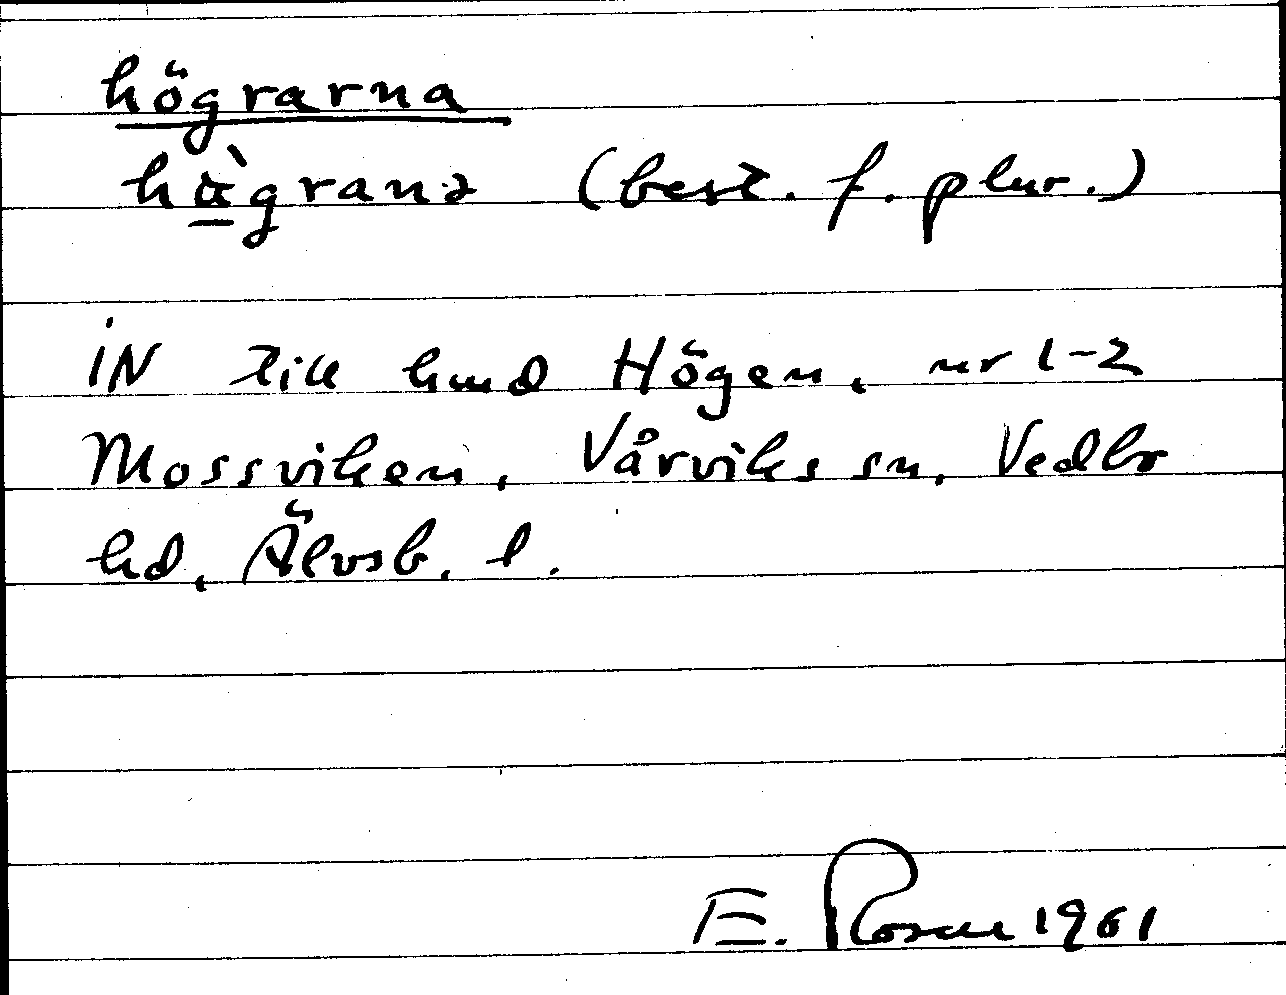 högrarna
hὰ̱granə (best. f. plur.)
iN till hmd Högen, nr 1-2
Mossviken, Vårviks sn, Vedbo
hd, Älvsb. l.
E. Rosen 1961